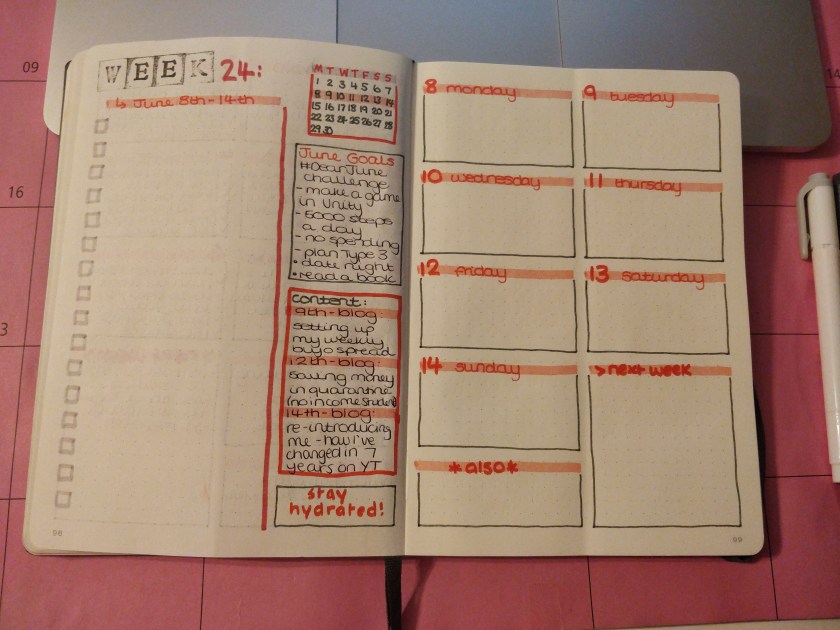 WEEK 24:
↳ June 8th-14th
M T W T F S S
1 2 3 4 5 6 7
8 9 10 11 12 13 14
15 16 17 18 19 20 21
22 23 24 25 26 27 28
29 30
June Goals
#DearJune
challenge
- make a game
in Unity
- 5000 steps
a day
- no spending
- plan Type 3
• date night
• read a book
content:
9th-blog:
setting up
my weekly
bujo spread
12th-blog:
saving money
in quarantine
(no income student)
14th-blog:
re-introducing
me - how I've
changed in 7
years on YT
stay
hydrated!
98
8 monday
9 tuesday
10 wednesday
11 thursday
12 friday
13 saturday
14 sunday
> next week
*also*
99
09
16
3
14